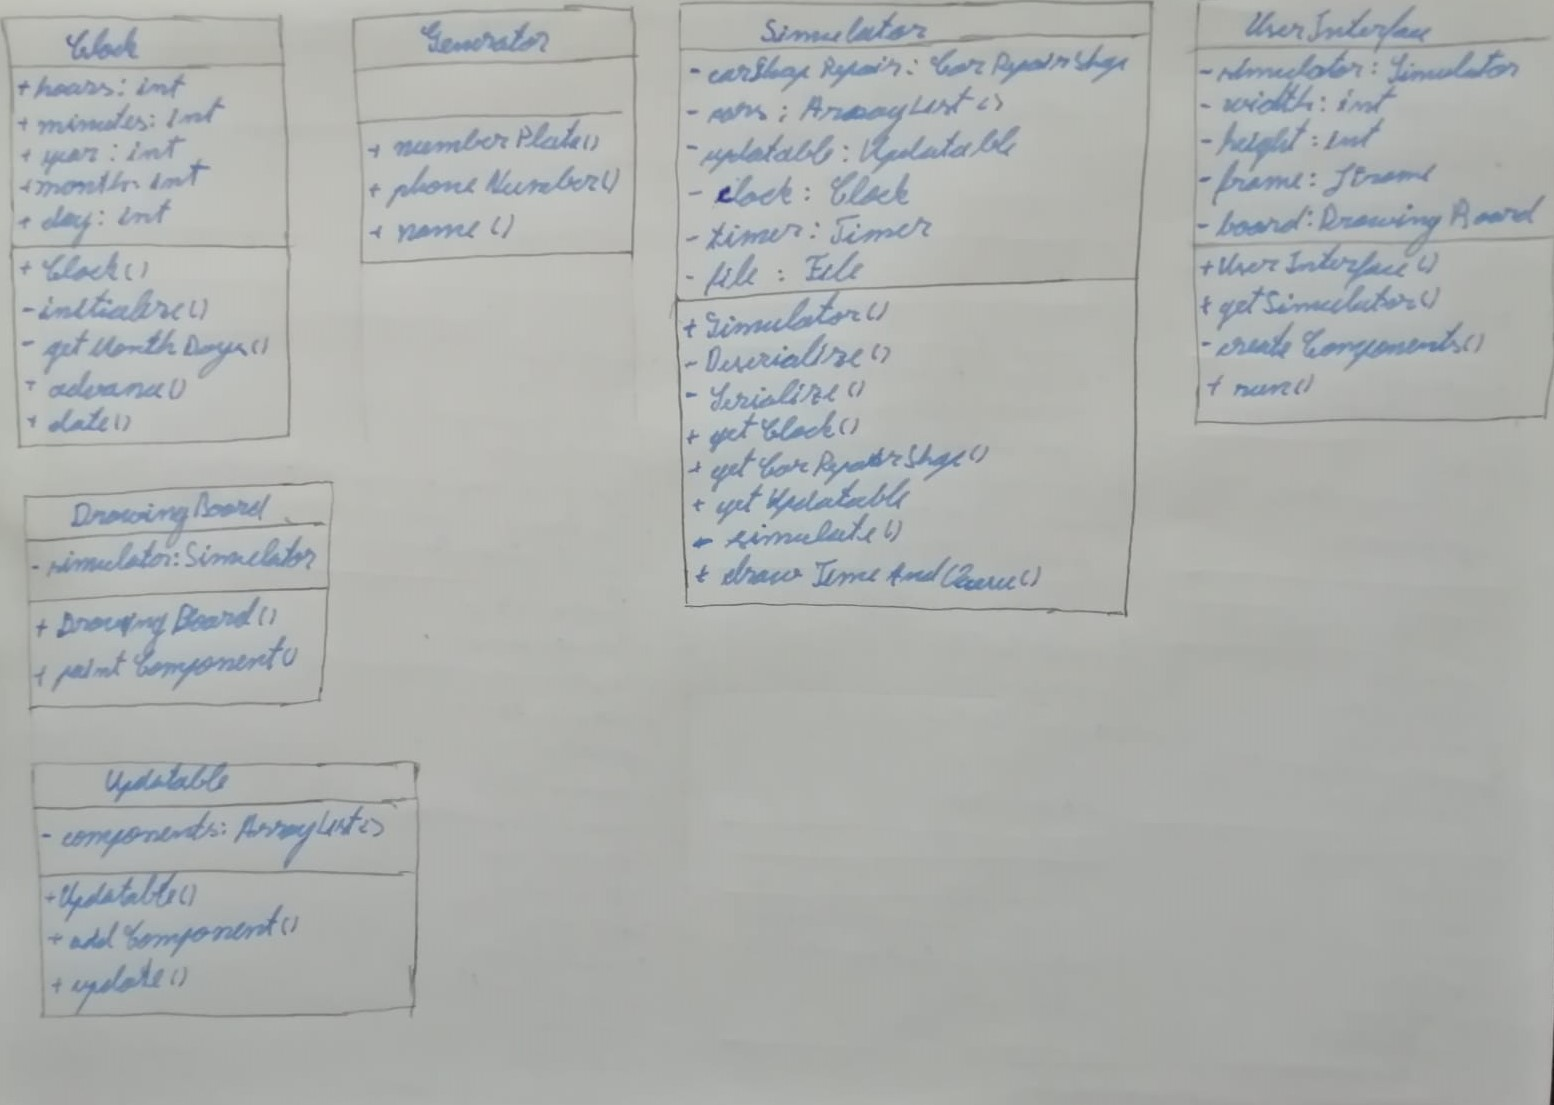 Clock
+ hours: int
+ minutes: int
+ year: int
+ month: int
+ day: int
+ Clock()
- initialize()
- getMonthDays()
+ advance()
+ date()
Generator
+ numberPlate()
+ phoneNumber()
+ name()
Simulator
- carShopRepair: CarRepairShop
- cars: ArrayList<>
- updatable: Updatable
- clock: Clock
- timer: Timer
- file: File
+ Simulator()
- Deserialize()
- Serialize()
+ getClock()
+ getCarRepairShop()
+ getUpdatable
- simulate()
+ drawTimeAndQueue()
UserInterface
- simulator: Simulator
- width: int
- height: int
- frame: JFrame
- board: DrawingBoard
+ UserInterface()
+ getSimulator()
- createComponents()
+ run()
DrawingBoard
- simulator: Simulator
+ DrawingBoard()
+ paintComponent()
Updatable
- components: ArrayList<>
+ Updatable()
+ addComponent()
+ update()